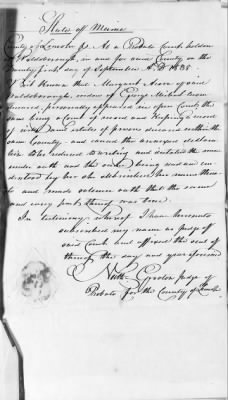 State of Maine
County of Lincoln ss At a Probate Court holden
at Waldoborough, in and for said County on the
twenty first day of September A.D. 1838.
Be it Known that Margaret of said
Waldoborough, widow of George Michael
deceased, personally appeared in open County the
same being a Court of record and Keeping a record
of estates of persons deceased within the
same County and caused the annexed declara-
tion to be reduced to writing and dictated the same
under oath and the under being read and un-
derstood by her she subscribes her name there-
to and made solemn oath that the same
and every part thereof was true.
In testimony whereof I have hereunto
subscribed my name as judge of
said Court and affixed the seal of
thereof the day and year aforesaid
Nath Groton judge of
Probate for the County of Lincoln